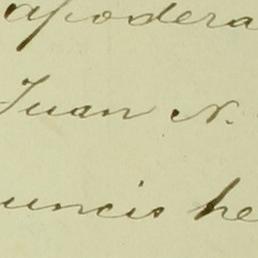 apodera
Juan N.
uncio he